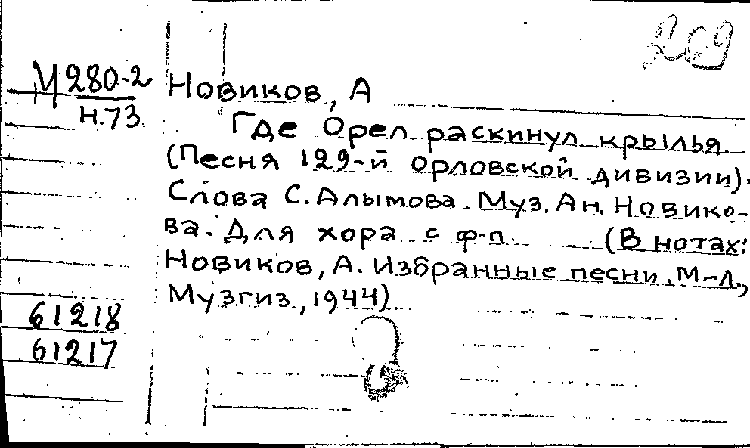 269
М280-2
н.73.
Новиков, А
Где Орел раскинул крылья
(Песня 129-й Орловской дивизии).
Слова С. Алымова. Муз. Ан. Новико-
ва. Для хора с ф-п (В нотах:
Новиков, А. Избранные песни. М-Л.,
Музгиз, 1944)
61218
61217